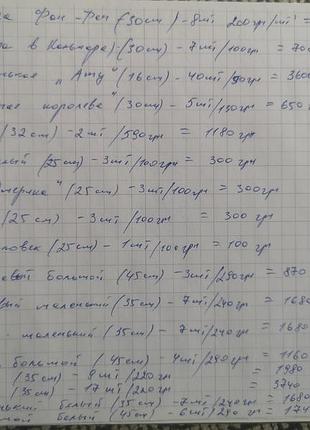 Фан-Фан (30см) - 8шт 200гр/шт =
в (30см) - 7шт/100гр = 700
"Амур" (16см) - 40шт/90гр = 3600
королева" (30см) - 5шт/130гр = 650
(32см) - 2шт/590гр = 1180гр
(25см) - 3шт/100гр = 300гр
" (25см) - 3шт/100гр = 300гр
(25см) - 3шт/100гр = 300гр
(25см) - 1шт/100гр = 100гр
большой (45см) - 3шт/290гр = 870
маленький (35см) - 7шт/240гр = 1680
маленький (35см) - 7шт/240гр = 1680
большой (45см) - 4шт/290гр = 1160
(35см) - 9шт/220гр = 1980
(35см) - 17шт/220гр = 3740
белый (35см) - 7шт/240гр = 1680
белый (45см) 6шт/290гр = 174